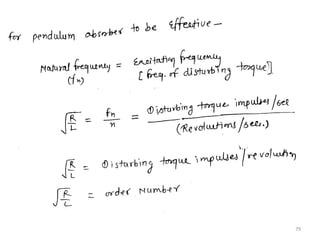 for pendulum absorber to be Effective –
Natural frequency = Excitation frequency
(fn) [freq. of disturbing torque]
√R/L = fn/n = Disturbing torque impulses/sec / (Revolutions/sec.)
√R/L = Disturbing torque impulses/revolution
√R/L = order Number
79